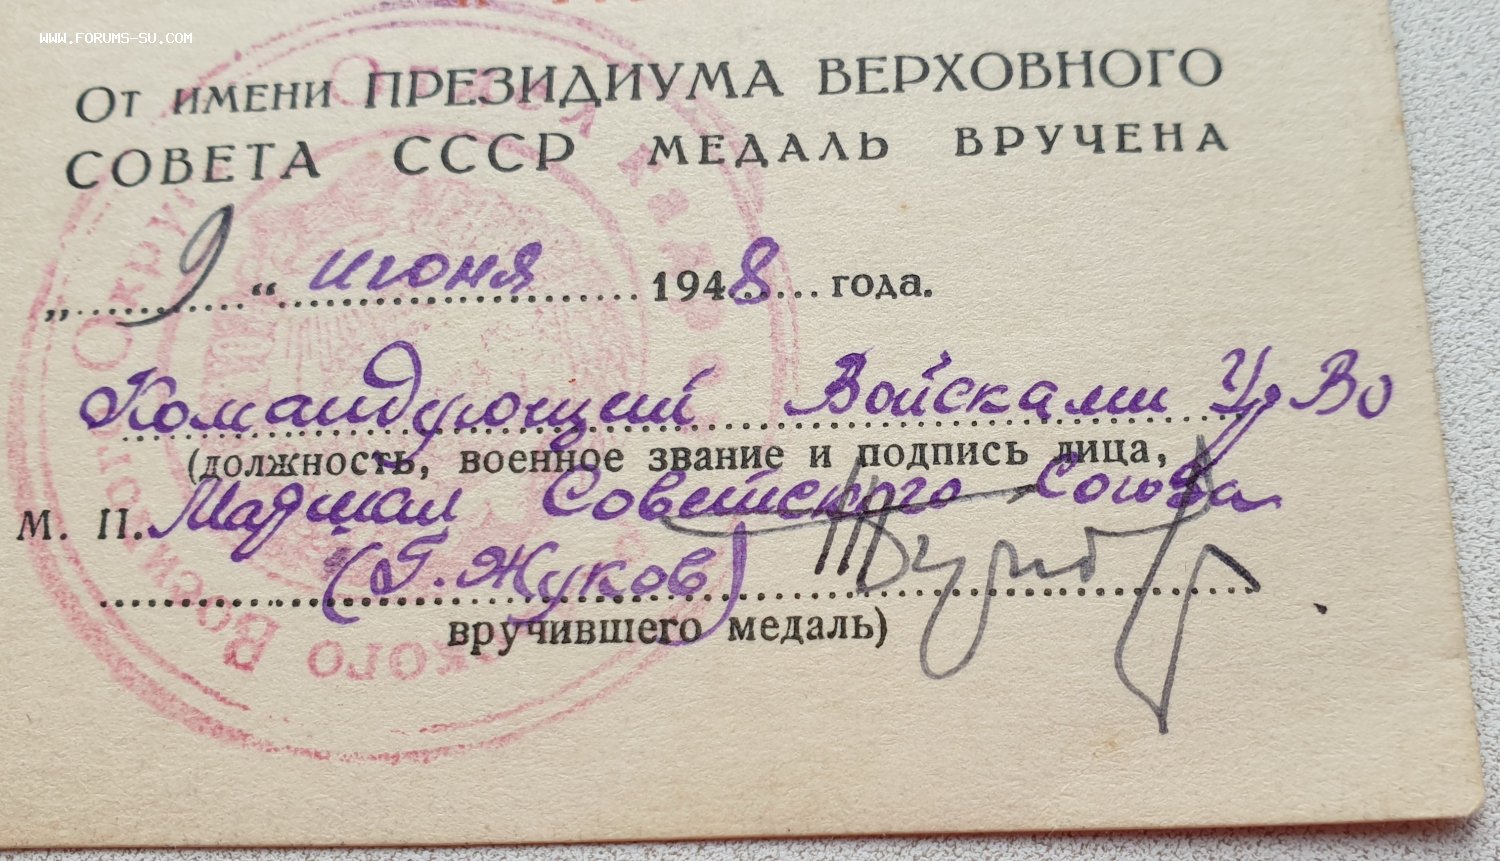 WWW.FORUMS-SU.COM
От имени ПРЕЗИДИУМА ВЕРХОВНОГО
СОВЕТА СССР МЕДАЛЬ ВРУЧЕНА
„9“ июня 1948 года.
Командующий Войсками УрВо
(должность, военное звание и подпись лица,
М. П. Маршал Советского Союза
(Г. Жуков)
вручившего медаль)
ского Военного Округа